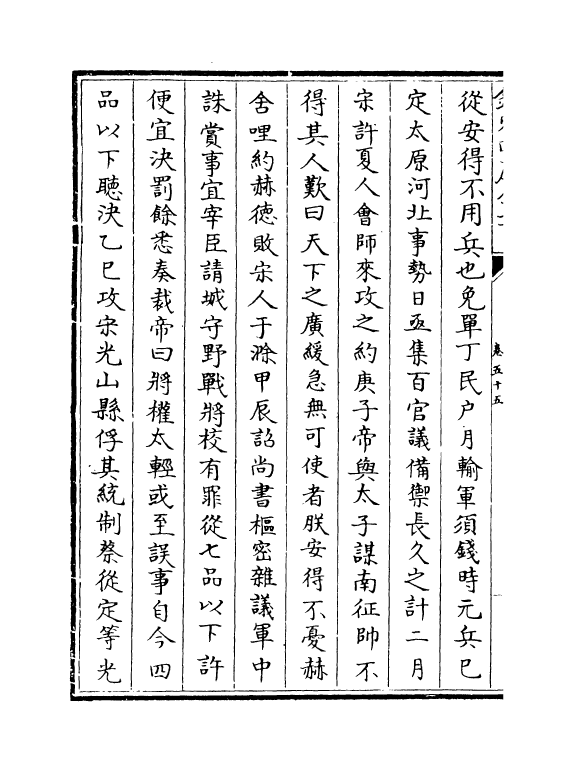 卷五十五
從安得不用兵也免單丁民户月輸軍須錢時元兵已
定太原河北事勢日亟集百官議備禦長久之計二月
宋許夏人會師來攻之約庚子帝與太子謀南征帥不
得其人歎曰天下之廣緩急無可使者朕安得不憂赫
舍哩約赫徳敗宋人于滁甲辰詔尚書樞密雜議軍中
誅賞事宜宰臣請城守野戰將校有罪從七品以下許
便宜決罰餘悉奏裁帝曰將權太輕或至誤事自今四
品以下聽決乙巳攻宋光山縣俘其統制蔡從定等光